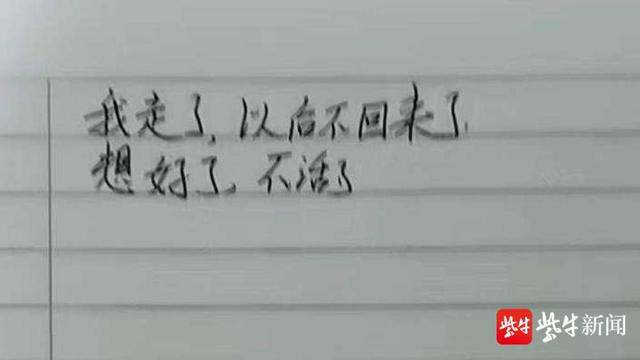 我走了,以后不回来了
想好了,不活了
紫牛 紫牛新闻